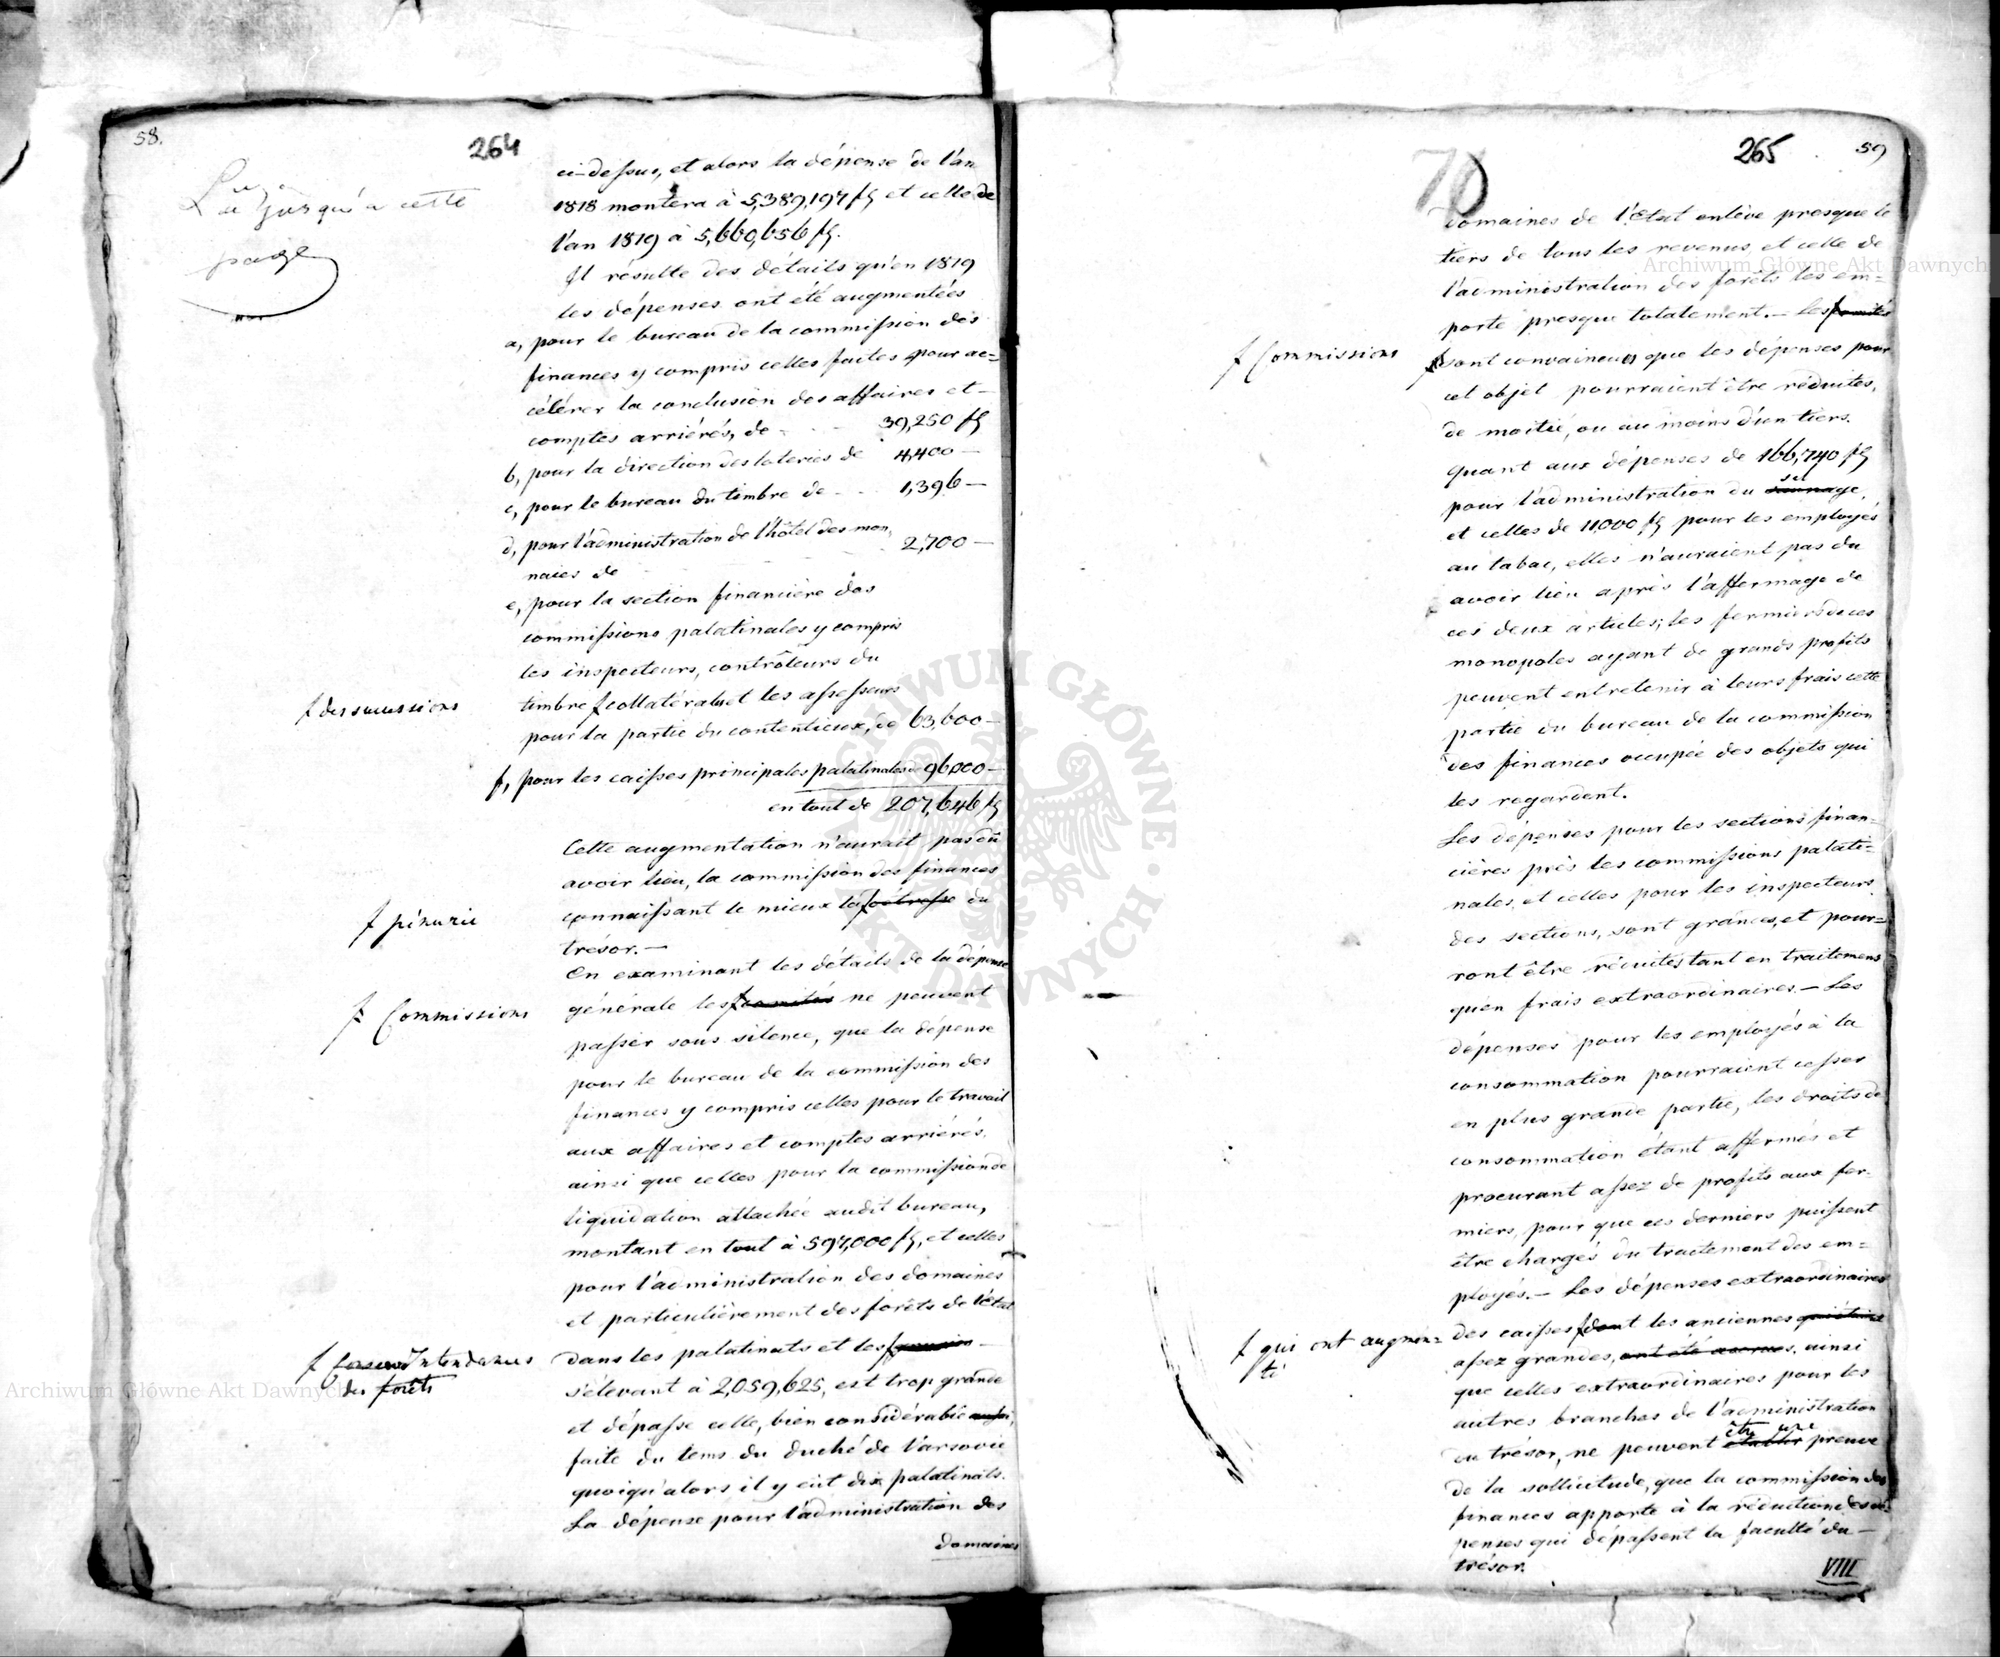 58.
264
Lu
jusqu'à cette
page
ci-dessus, et alors la dépense de l'an
1818 montera à 5,389,197 fl, et celle de
l'an 1819 à 5,660,656 fl.
Il résulte des détails qu'en 1819
les dépenses ont été augmentées
a, pour le bureau de la commission des
finances y compris celles faites pour ac=
célérer la conclusion des affaires et
comptes arriérés, de - - 39,250 fl
b, pour la direction des loteries de 4,400 —
c, pour le bureau du timbre de - - 1,396 —
d, pour l'administration de l'hôtel des mon,
naies de 2,700 —
e, pour la section financière des
commissions palatinales y compris
les inspecteurs, contrôleurs du
ƒ des successions
timbre ƒ collatéral et les assesseurs
pour la partie du contentieux, de 63,600 —
f, pour les caisses principales palatinales de 96,000 —
en tout de 207,646 fl
Cette augmentation n'aurait pas dû
avoir lieu, la commission des finances
connaissant le mieux la ƒ détresse du
ƒ pénurie
trésor. —
En examinant les détails de la dépense
générale les ƒ comités ne peuvent
ƒ Commissions
passer sous silence, que la dépense
pour le bureau de la commission des
finances y compris celles pour le travail
aux affaires et comptes arriérés,
ainsi que celles pour la commission de
liquidation attachée audit bureau,
montant en tout à 597,000 fl, et celles
pour l'administration des domaines
et particulièrement des forêts de l'état
dans les palatinats et les ƒ
ƒ Intendances
des forêts
s'élevant à 2,059,625, est trop grande
et dépasse celle, bien considérable aussi,
faite du tems du duché de Varsovie
quoiqu'alors il y eût dix palatinats.
La dépense pour l'administration des
domaines
70
265
59
domaines de l'état enlève presque le
tiers de tous les revenus, et celle de
l'administration des forêts les em=
porte presque totalement. — Les ƒ comités
ƒ Commissions
sont convaincus que les dépenses pour
cet objet pourraient être réduites,
de moitié, ou au moins d'un tiers.
Quant aux dépenses de 166,740 fl
pour l'administration du saunage, sel
et celles de 11,000 fl pour les employés
au tabac, elles n'auraient pas du
avoir lieu après l'affermage de
ces deux articles; les fermiers de ces
monopoles ayant de grands profits
peuvent entretenir à leurs frais cette
partie du bureau de la commission
des finances occupée des objets qui
les regardent.
Les dépenses pour les sections finan=
cières près les commissions palati=
nales, et celles pour les inspecteurs
des sections, sont grandes, et pour=
ront être réduites tant en traitemens
qu'en frais extraordinaires. — Les
dépenses pour les employés à la
consommation pourraient cesser
en plus grande partie, les droits de
consommation étant affermés et
procurant assez de profits aux fer=
miers, pour que ces derniers puissent
être chargés du traitement des em=
ployés. — Les dépenses extraordinaires
des caisses ƒ dont les anciennes qui étaient
ƒ qui ont augmen=
té
assez grandes, ont été accrues, ainsi
que celles extraordinaires pour les
autres branches de l'administration
du trésor, ne peuvent établir être une preuve
de la sollicitude, que la commission des
finances apporte à la réduction des dé=
penses qui dépassent la faculté du —
trésor.
VIII
Archiwum Główne Akt Dawnych
Archiwum Główne Akt Dawnych
ARCHIWUM GŁÓWNE · AKT DAWNYCH ·